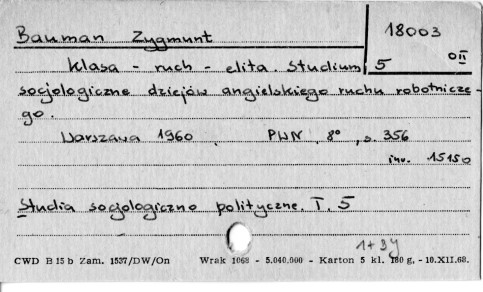 Bauman Zygmunt
18003
Klasa - ruch - elita. Studium
5
socjologiczne dziejów angielskiego ruchu robotnicze-
go.
Warszawa 1960, PWN, 8°, s. 356
inw. 15150
Studia socjologiczno polityczne. T. 5
CWD B 15 b Zam. 1537/DW/On Wrak 1068 - 5.040.000 - Karton 5 kl. 180 g, - 10.XII.68.